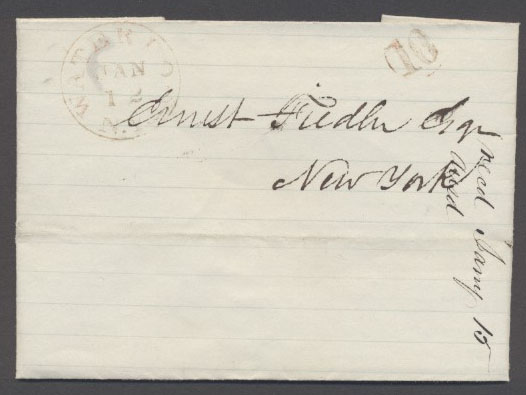 JAN
12
N.Y
10
Ernest Fiedler Esqr
New York
recd Jany 15